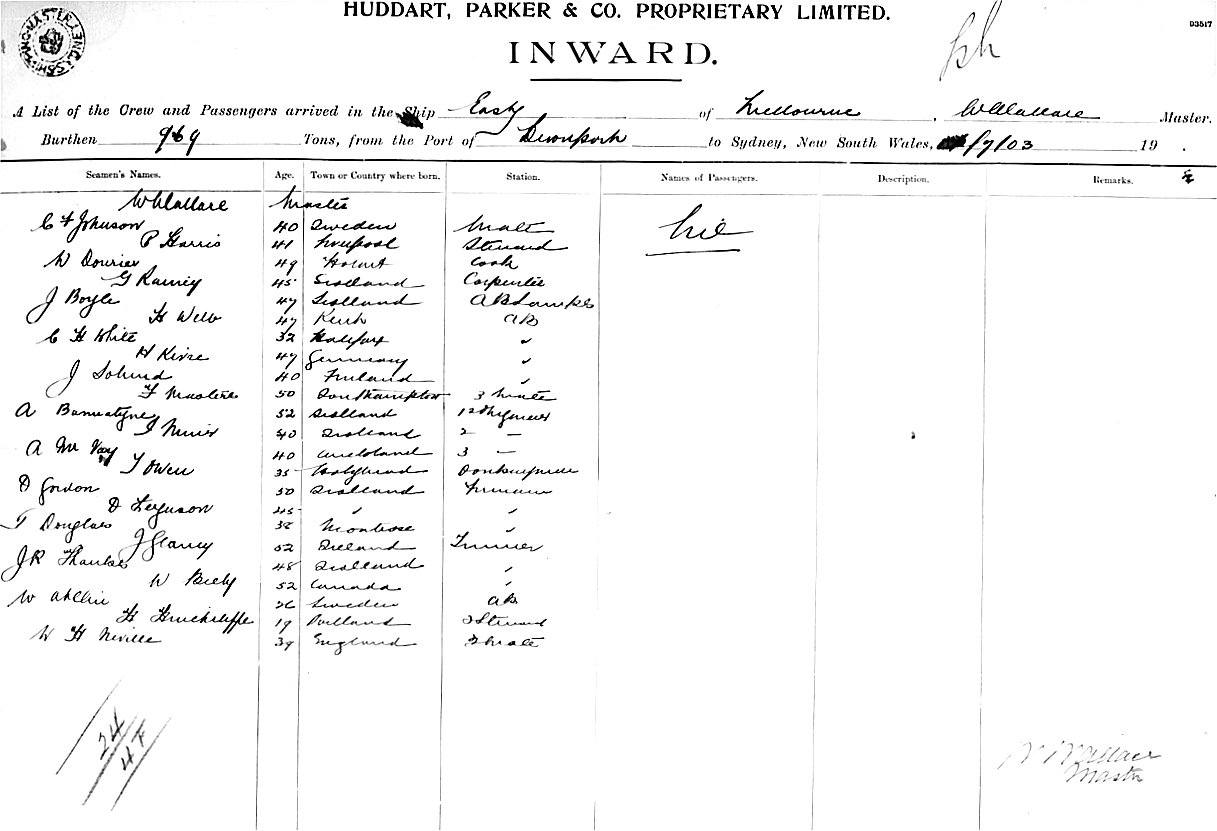 HUDDART, PARKER & CO. PROPRIETARY LIMITED.
03517
INWARD.
A List of the Crew and Passengers arrived in the Ship Easby of Melbourne, W Wallace Master.
Burthen 969 Tons, from the Port of Devonport to Sydney, New South Wales, /7/03 19 .
Seamen's Names. Age. Town or Country where born. Station. Names of Passengers. Description. Remarks.
W Wallace Master
C F Johnson 40 Sweden Mate Nil
P Harris 41 Liverpool Steward
W 49 Hobart Cook
G Ramey 45 Scotland Carpenter
J Boyle 47 Scotland AB Lamps
H Webb 47 AB
C H White 32 Halifax "
H 47 Germany "
J 40 Finland "
F Masters 50 Southampton 2 Mate
A Bannatyne 52 Scotland 1 Engineer
J 40 Scotland 2 —
A 40 3 —
T Owen 35 Holyhead Donkeyman
D Gordon 50 Scotland Fireman
D Ferguson 45 " "
T Douglas 38 Montrose "
J Glancy 52 Ireland Trimmer
J R 48 Scotland "
W 52 Canada "
W 26 Sweden AB
H Hinchcliffe 19 2 Steward
W H Neville 39 England 3 Mate
24
4
W Wallace
Master